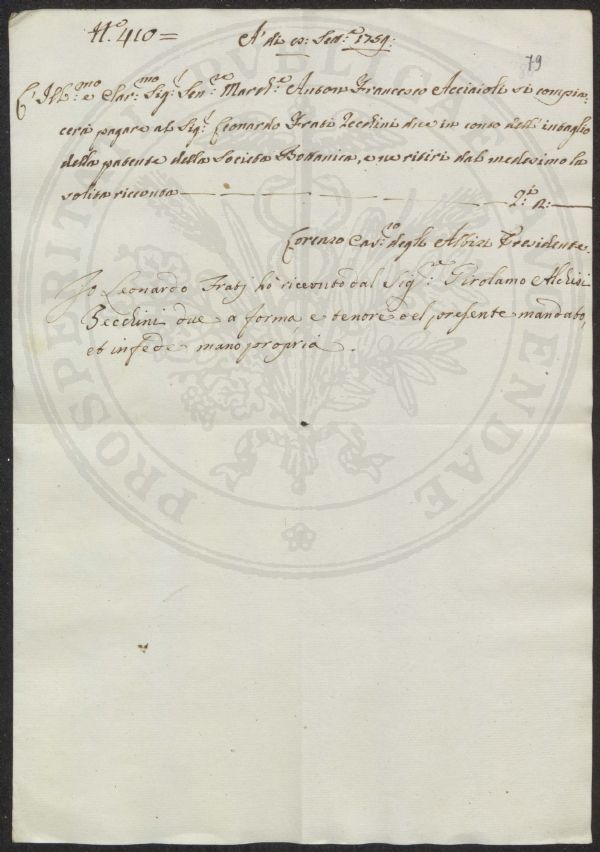 N.º 410 =
A' di Sett.e 1754:
79
L'Ill.mo e Clar.mo Sig.r Sen.re March.e Anton Francesco Acciaioli si compia:
cerà pagare al Sig.r Leonardo Frati Zecchini due in conto dell'intaglio
della patente della Società Bottanica, e ne ritiri dal medesimo la
solita ricevuta
2:
Lorenzo Cav.re degli Albizi Presidente
Io Leonardo Fratj hò ricevuto dal Sig.re Girolamo
Zecchini due a forma e tenore del presente mandato,
et in fede mano propria.
PROSPERITATI PUBLICAE AUGENDAE